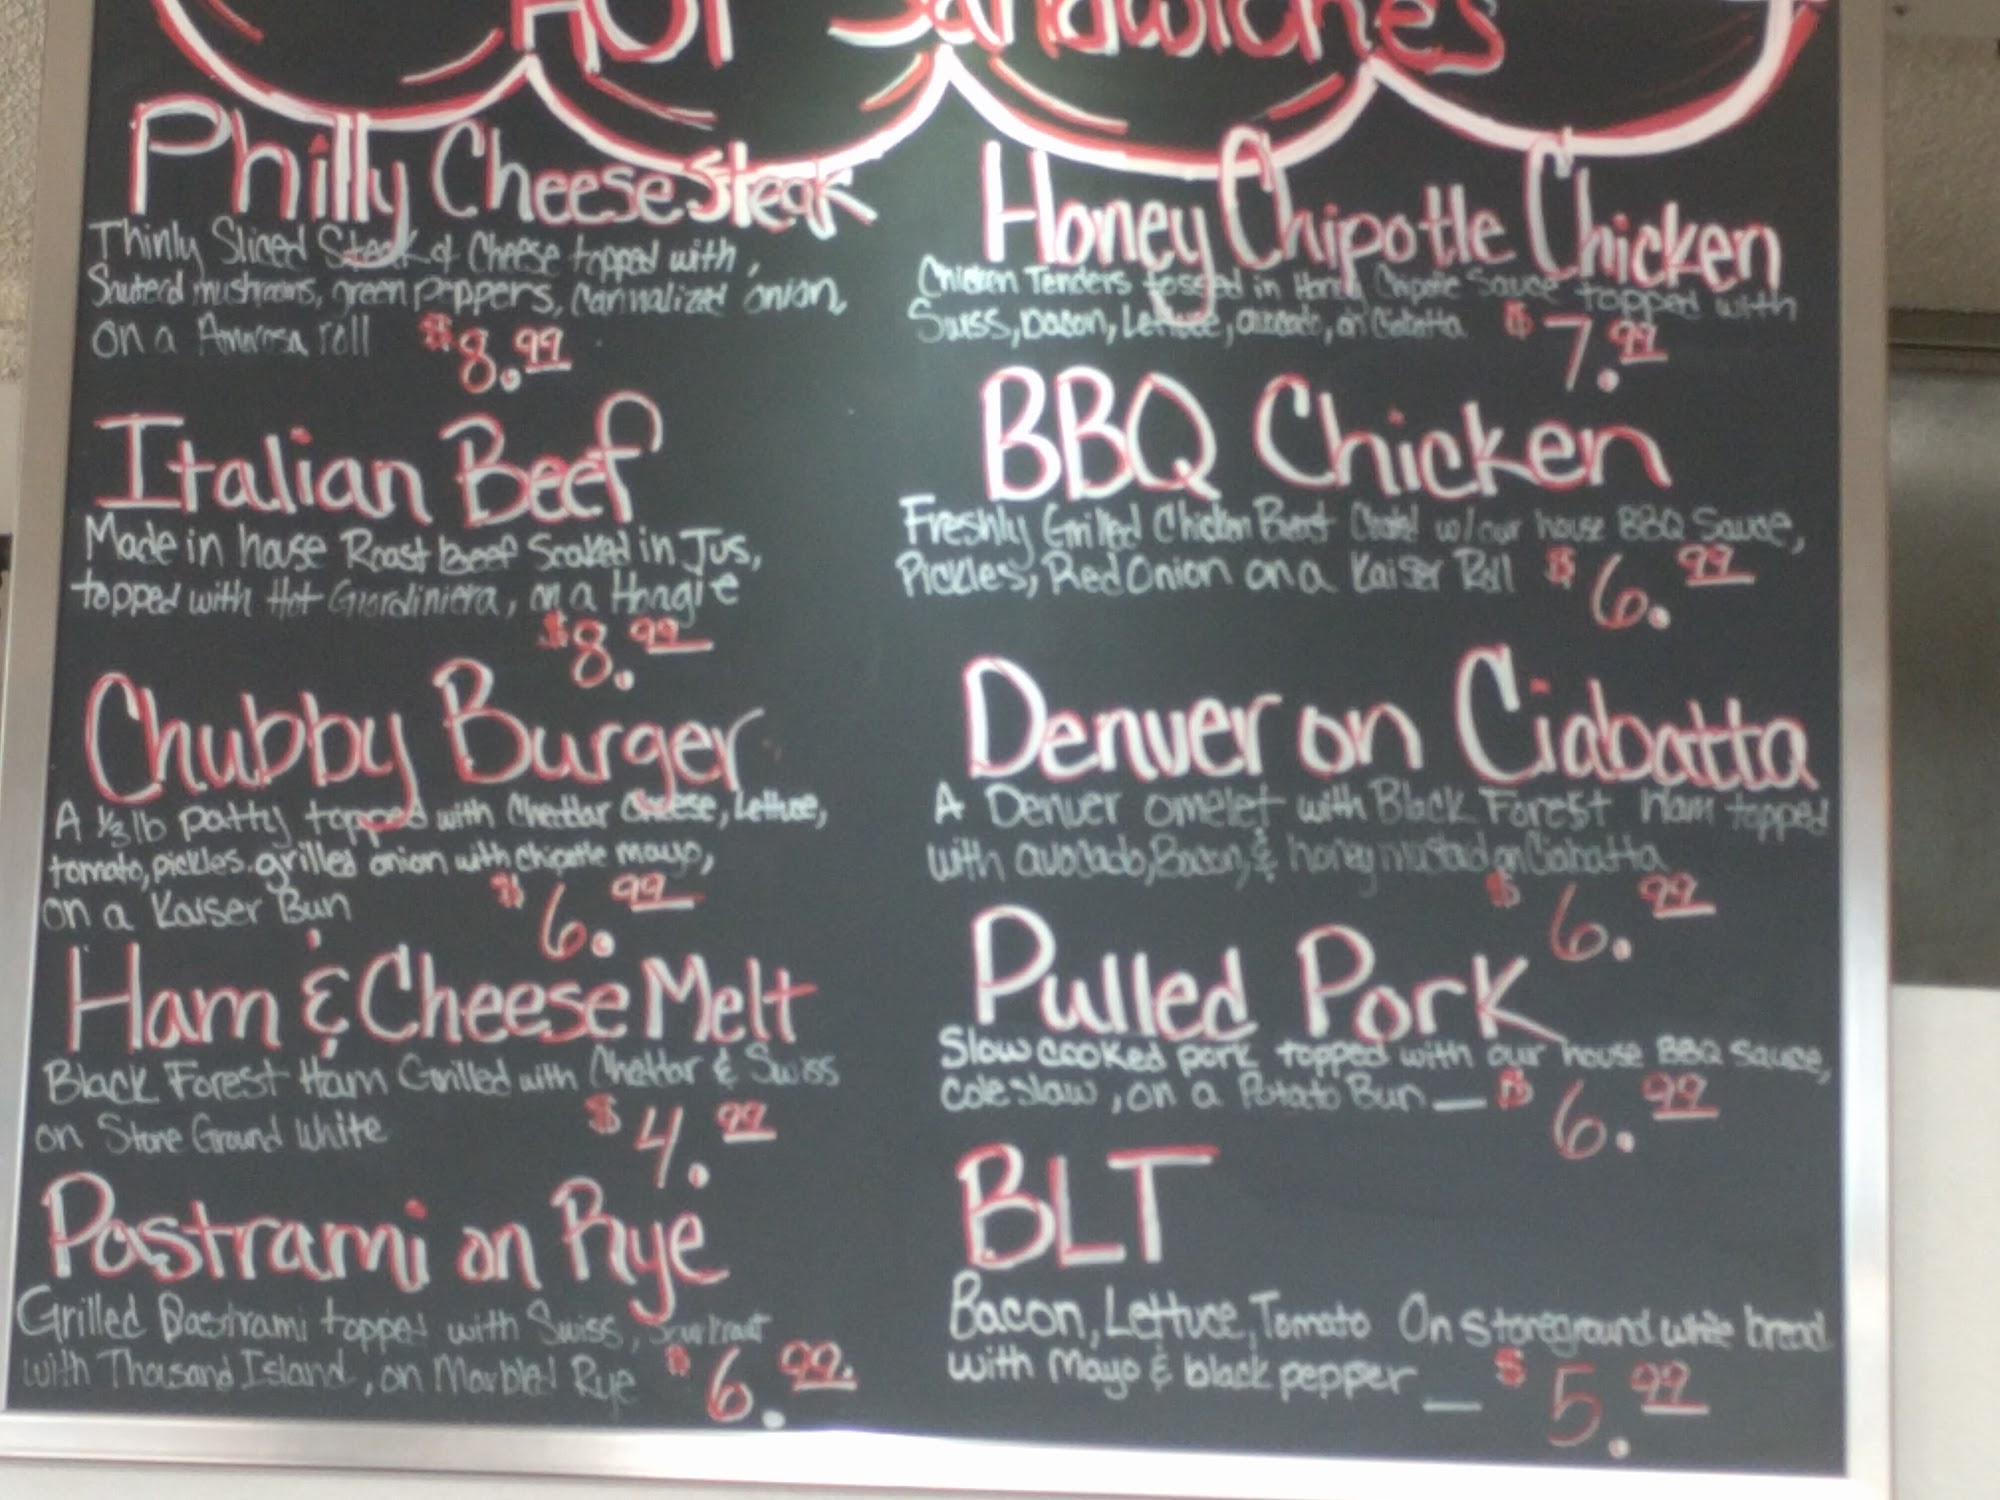 Hot Sandwiches
Philly Cheese Steak
Thinly Sliced Steak & Cheese topped with,
Sauteed mushrooms, green peppers, carmalized onion,
on a Amorosa roll $8.99
Italian Beef
Made in house Roast beef Soaked in Jus,
topped with Hot Giardiniera, on a Hoagie
$8.99
Chubby Burger
A 1/3 lb patty topped with Cheddar Cheese, Lettuce,
tomato, pickles, grilled onion with chipotle mayo,
on a Kaiser Bun $6.99
Ham & Cheese Melt
Black Forest Ham Grilled with Cheddar & Swiss
on Stone Ground White $4.99
Pastrami on Rye
Grilled Pastrami topped with Swiss,
with Thousand Island, on Marbled Rye $6.99
Honey Chipotle Chicken
Chicken Tenders tossed in Honey Chipotle Sauce topped with
Swiss, bacon, Lettuce, avocado, on Ciabatta $7.99
BBQ Chicken
Freshly Grilled Chicken Breast w/our house BBQ Sauce,
Pickles, Red Onion on a Kaiser Roll $6.99
Denver on Ciabatta
A Denver omelet with Black Forest Ham topped
with avocado, Bacon, & honey mustard on Ciabatta
$6.99
Pulled Pork
Slow cooked pork topped with our house BBQ Sauce,
Coleslaw, on a Potato Bun — $6.99
BLT
Bacon, Lettuce, Tomato On stoneground white bread
with Mayo & black pepper — $5.99